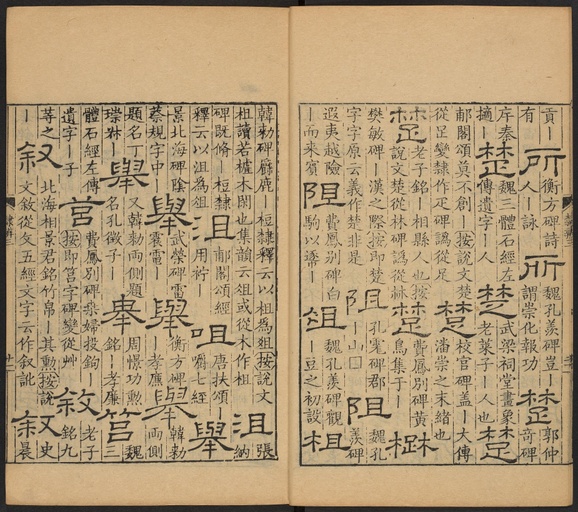 貢丨有所衡方碑詩人丨詠所魏孔羨碑豈丨謂崇化報功楚郭仲奇碑
序秦丨摘丨楚魏三體石經左傳遺字丨人楚武梁祠堂畫象老萊子丨人也楚
郙閣頌莫不創丨按說文楚從疋變隸作疋碑譌從足楚校官碑蓋丨大傅潘崇之末緒也
楚老子銘丨相縣人也按說文楚從林碑譌從楚費鳳別碑黃鳥集于丨
樊敏碑丨漢之際按即楚字字原云義作楚非是阻孔宙碑郡丨山□阻魏孔羨碑
遐夷越險丨而來賓阻費鳳別碑白駒以逶丨俎魏孔羨碑觀丨豆之初設柤
韓勑碑麃丨桓隸釋云以柤為俎按說文柤讀若樝木閑也集韻云俎或從木作柤沮張納
碑既脩丨桓隸釋云以沮為俎沮郙閣頌經用衿丨咀唐扶頌丨嚼七經舉
景北海碑陰蔡規字中丨舉武榮碑雷震電丨舉衡方碑丨孝廉舉韓勑兩側
題名丁丨琮丨舉又韓勑兩側題名孔徵子丨舉周憬功勲銘丨孝廉筥魏三
體石經左傳遺字丨子莒費鳳別碑乖婦投鉤丨按即莒字碑變從艸敘老子銘九
等之丨敘北海相景君銘竹帛丨其勳按說文敘從攵五經文字云作叙訛叙史晨